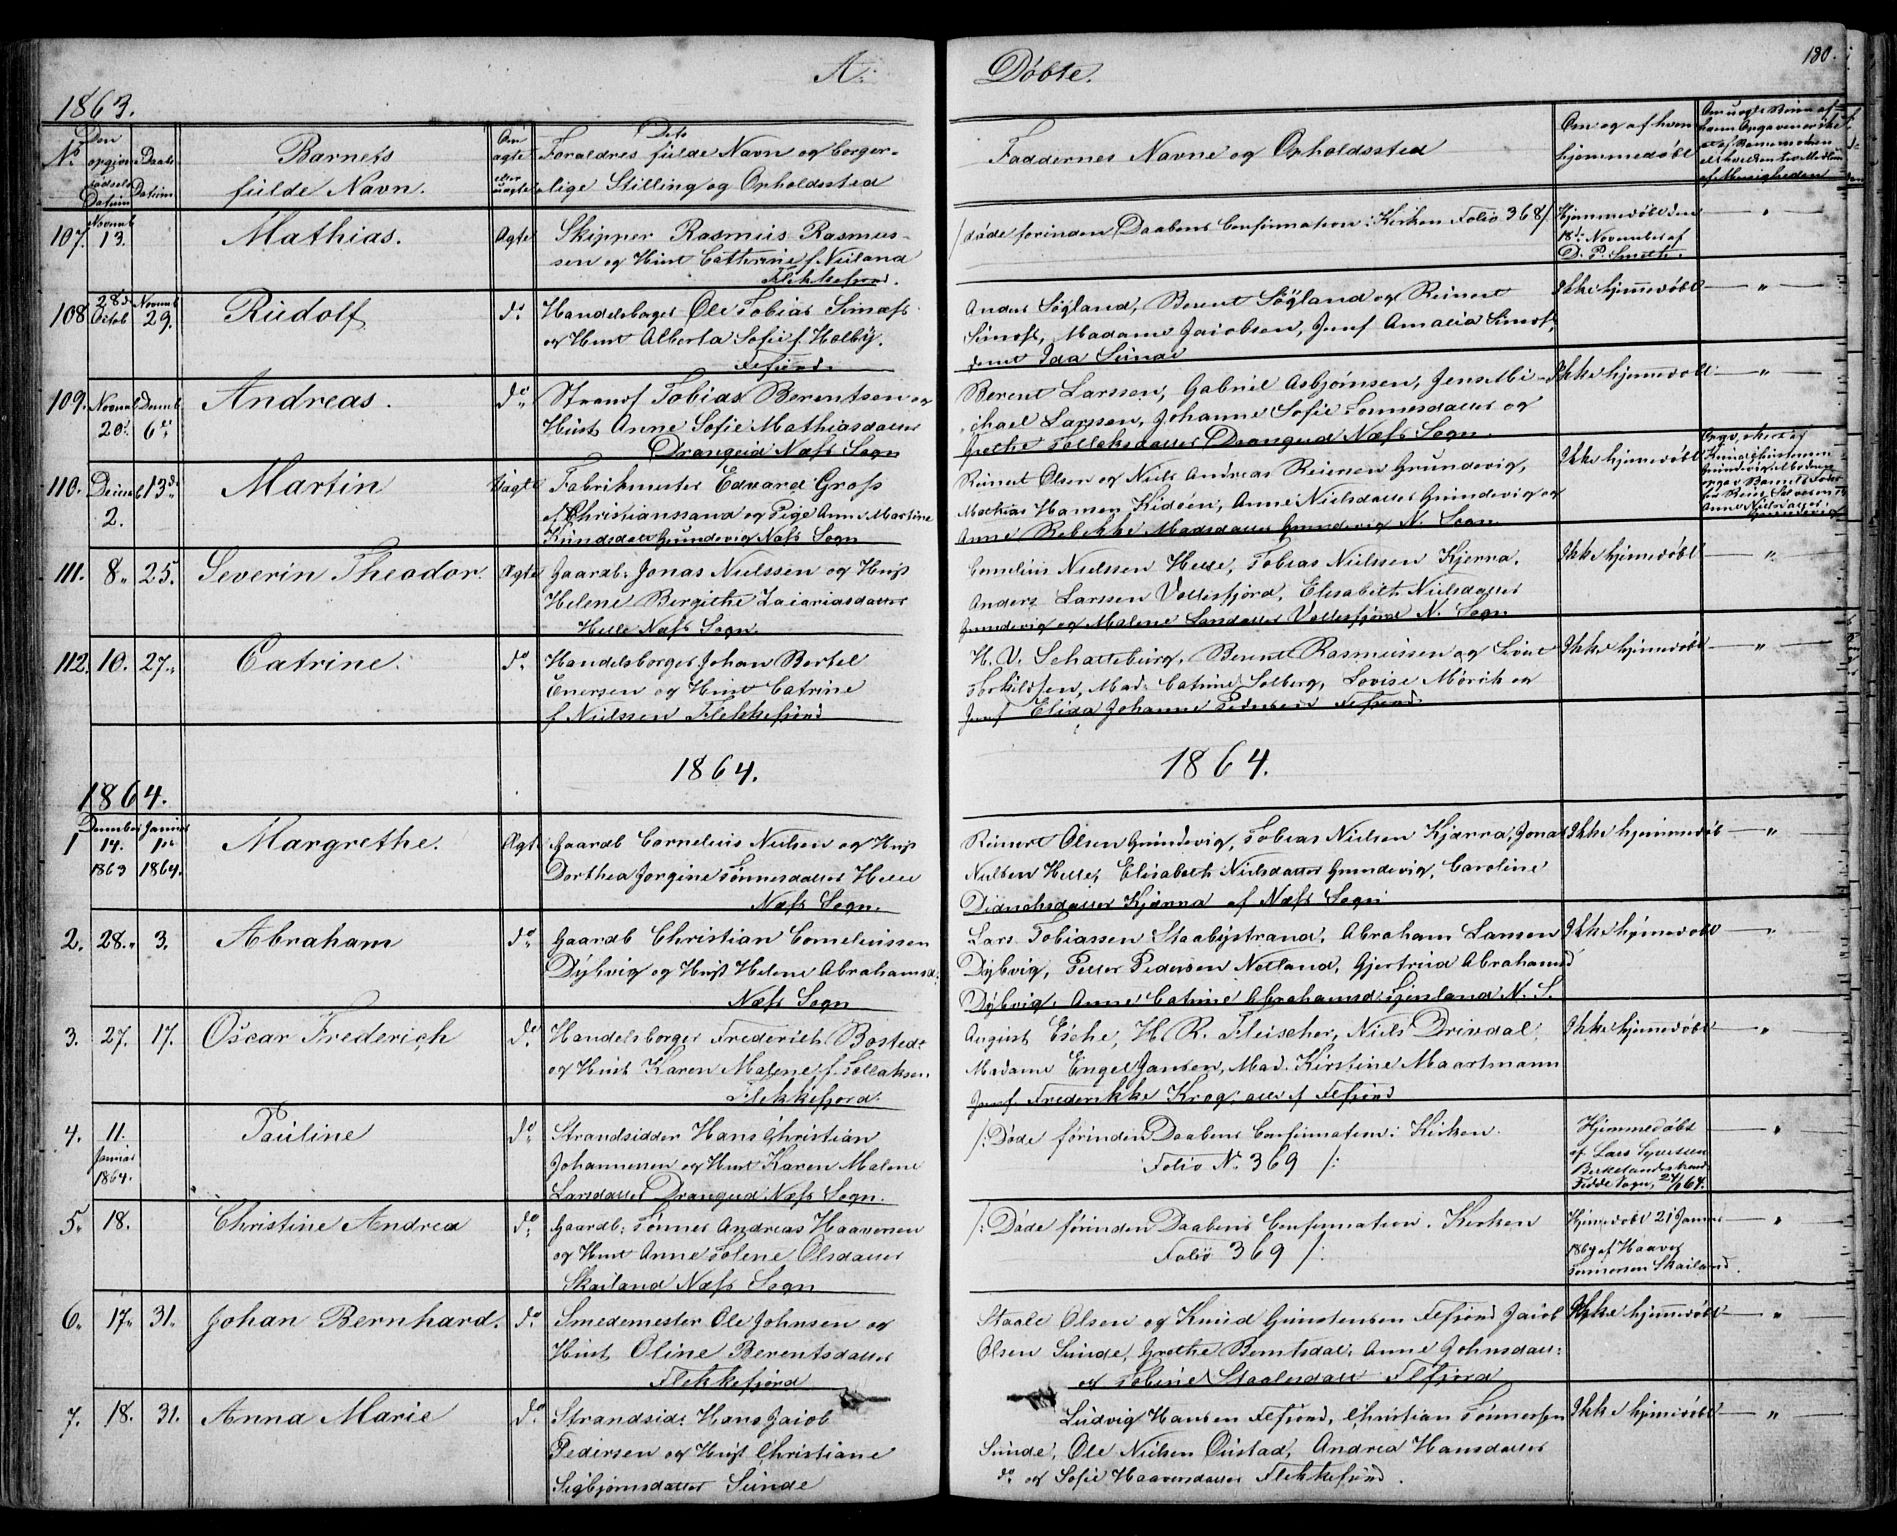 A. Døbte. 180.
1863.
No Den opgivne fødsels Datum Daabs Datum Barnets fulde Navn. Om ægte eller uægte Dets Forældres fulde Navn og borgerlige Stilling og Opholdssted
Faddernes Navne og Opholdssted Om og af hvem hjemmedøbt
107. Novemb 13. Mathias. Ægte Skipper Rasmus Rasmus-
sen og Hust Cathrine f. Neiland
Flekkefjord.
/døde forinden Daabens Confirmation i Kirken Folio 368/
Hjemmedøbt den
18de November af
D. P. Smeth.
108 28de Octob Novemb 29. Rudolf do Handelsborger Ole Tobias Simess
og Hust Alberta Sofie f. Holby.
Flfjord.
Anders Søgland, Berent Søgland og Reinert
Madame Jacobsen, Jomf Amalia
Ikke hjemmedøbt
109. Novemb 20. Decemb 6te Andreas. do Strands Tobias Berentsen og
Hust Anne Sofie Mathiasdatter
Drangeid Næss Sogn
Berent Larssen, Gabriel Asbjørnsen, Jens Mi-
chael Larssen, Johanne Sofie Tønnesdatter og
Grethe Tollaksdatter Drangeid Næss Sogn.
Ikke hjemmedøbt
110. Decemb 2. 13de Martin Uægte Fabrikmester Edvard Gross
af Christianssand og Pige Anne Martine
Knudsdatter Grundevig Næss Sogn
Reinert Olsen og Niels Andreas Reiersen Grundevig,
Mathias Hansen Kidøen, Anne Nielsdatter Grundevig og
Anne Rebekke Madsdatter Grundevig N. Sogn
Ikke hjemmedøbt
111. 8. 25. Severin Theodor. Ægte Gaardb. Jonas Nielssen og Hust
Helene Bergithe Zacariasdatter
Helle Næss Sogn.
Cornelius Nielssen Helle, Tobias Nielssen Kjerra,
Anders Larssen Vollesfjord, Elisabeth Nielsdatter
Grundevig og Malene Larsdatter Vollesfjord N. Sogn
Ikke hjemmedøbt
112. 10. 27. Catrine. do Handelsborger Johan Bertel
Enersen og Hust Catrine
f. Nielssen Flekkefjord
H. V. Schatteburg, Berent Rasmussen og Sivert
Torkildsen, Mad. Catrine Solberg, Lovise Mørch og
Jomf Elisa Johanne Pedersen Flfjord.
Ikke hjemmedøbt
1864. 1864.
1864.
1 December 14. 1863 Januar 1ste 1864. Margrethe. Ægt Gaardb Cornelius Nielsen og Hust
Dorthea Jorgine Tønnesdatter Helle
Næss Sogn.
Reinert Olsen Grundevig, Tobias Nielsen Kjærra, Jonas
Nielsen Helle, Elisabeth Nielsdatter Grundevig, Caroline
Didriksdatter Kjærra af Næss Sogn
Ikke hjemmedøb
2. 28. 3. Abraham do Gaardb Christian Corneliussen
Dybvig og Hust Helene Abrahamsd.
Næss Sogn
Lars Tobiassen Staalystrand, Abraham Larssen
Dybvig, Petter Pedersen Netland, Gjertrud Abrahamsd
Dybvig, Anne Catrine Abrahamsd. N. S.
Ikke hjemmedøbt
3. 27. 17. Oscar Frederich do Handelsborger Frederich Bosted
og Hust Karen Malene f. Tollaksen
Flekkefjord.
August Esche, H R. Fleischer, Niels Drivdal,
Madame Engel Jansen, Mad. Kirstine Maartmann
Jomf. Frederikke Krog, alle af Flfjord
Ikke hjemmedøbt
4. 11. Januar 1864. Pauline do Strandsidder Hans Christian
Johannessen og Hust Karen Malene
Larsdatter Drangeid Næss Sogn.
/: Døde forinden Daabens Confirmation i Kirken.
Folio No 369 /:
Hjemmedøbt
af Lars Syvertsen
Birkelandsstrand
Fedde Sogn, 24/1 64.
5. 18. Christine Andrea do Gaardb: Tønnes Andreas Haaversen
og Hust Anne Tolene Olsdatter
Skailand Næss Sogn
/: Døde forinden Daabens Confirmation i Kirken
Folio 369 /:
Hjemmedøbt 21 Januar
1864 af Haaver
Tønnessen Skailand.
6. 17. 31. Johan Bernhard. do Smedemester Ole Johnsen og
Hust Oline Berentsdatter
Flekkefjord
Staale Olsen og Knud Flfjord Jacob
Olsen Sunde, Grethe Berntsdat. Anne Johnsdatt:
og Tobine Staalesdatt Flfjord
Ikke hjemmedøbt
7. 18. 31. Anna Marie do Strandsid: Hans Jacob
Pedersen og Hust Christiane
Sigbjørnsdatter Sunde
Ludvig Hansen Flfjord, Christian Tønnessen
Sunde, Ole Nielsen Oustad, Andrea Hansdatter
do og Sofie Haaversdatter Flekkefjord.
Ikke hjemmedøbt